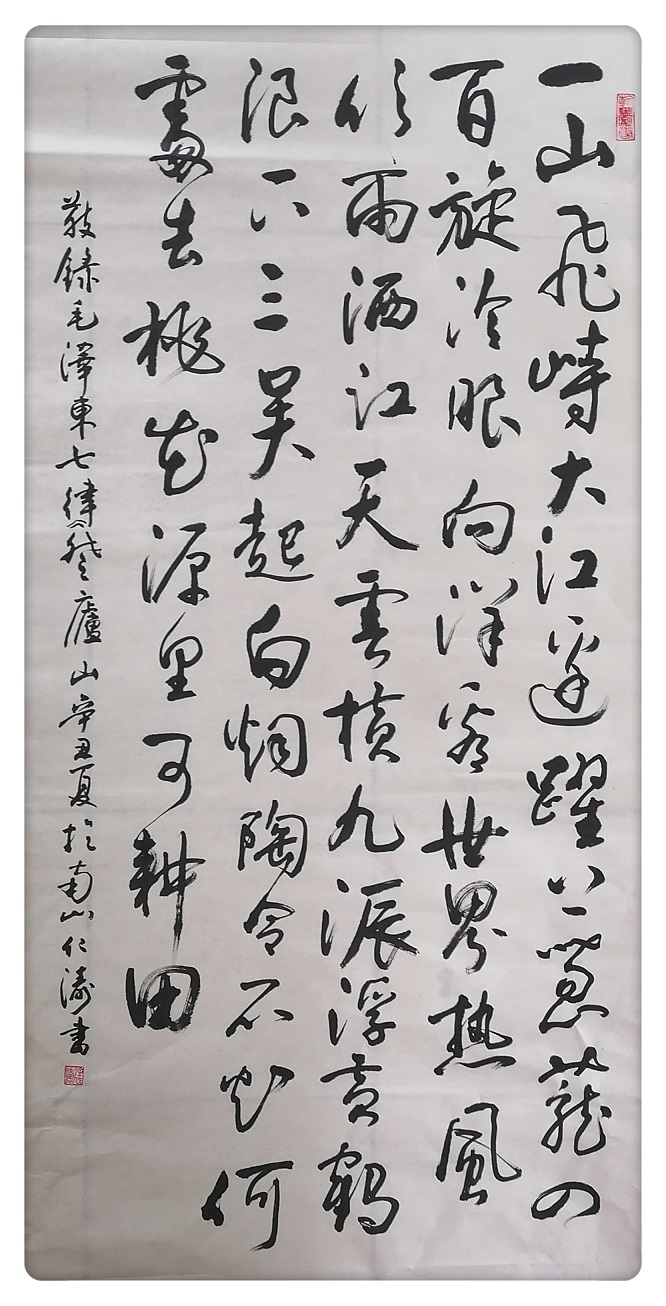 一山飛峙大江邊躍上蔥蘢四
百旋冷眼向洋看世界热風
吹雨洒江天雲横九派浮黄鶴
浪下三吴起白烟陶令不知何
處去桃花源里可耕田
敬録毛澤東七律登廬山辛丑夏於南山仁濤書